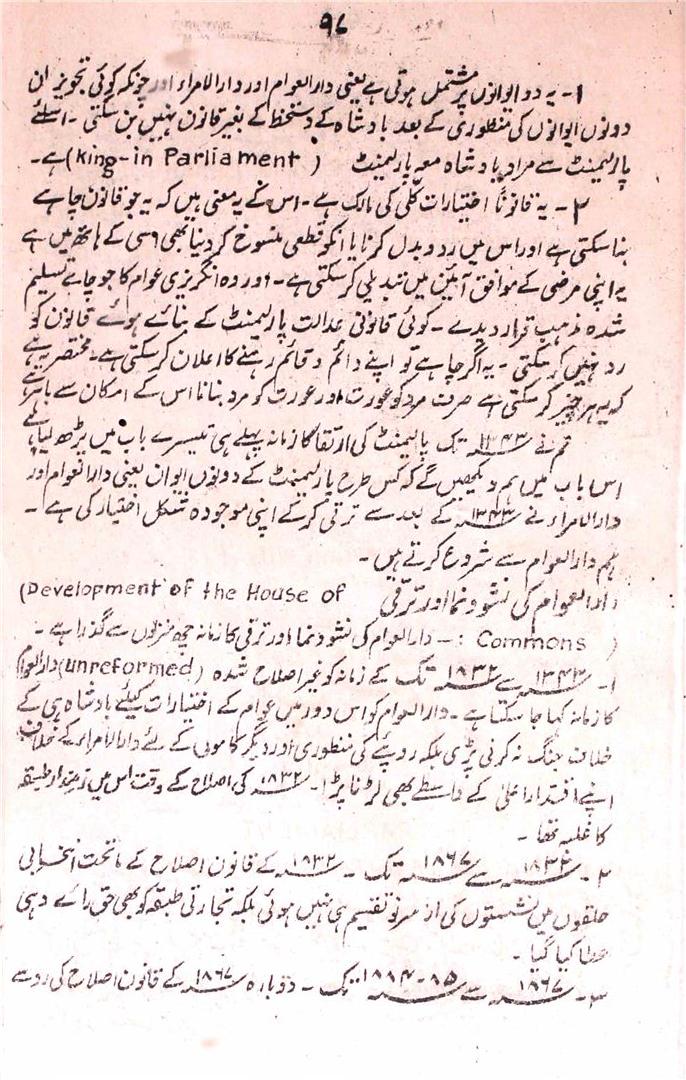 ۹۷
۱- یہ دو ایوانوں پر مشتمل ہوتی ہے یعنی دارالعوام اور دارالامراء اور چونکہ کوئی تجویز ان
دونوں ایوانوں کی منظوری کے بعد بادشاہ کے دستخط کے بغیر قانون نہیں بن سکتی ۔ اسلئے
پارلیمنٹ سے مراد بادشاہ معہ پارلیمنٹ ( King-in Parliament) ہے۔
۲- یہ قانوناً اختیارات کُلّی کی مالک ہے ۔ اس کے یہ معنی ہیں کہ یہ جو قانون چاہے
بنا سکتی ہے اور اس میں رد و بدل کرنا یا انکو قطعی منسوخ کر دینا بھی اسی کے ہاتھ میں ہے
یہ اپنی مرضی کے موافق آئین میں تبدیلی کر سکتی ہے ۔ اور وہ انگریزی عوام کا جو چاہے تسلیم
شدہ مذہب قرار دیدے ۔ کوئی قانونی عدالت پارلیمنٹ کے بنائے ہوئے قانون کو
رد نہیں کر سکتی ۔ یہ اگر چاہے تو اپنے دائم و قائم رہنے کا اعلان کر سکتی ہے۔ مختصر یہ ہے
کہ یہ ہر چیز کر سکتی ہے صرف مرد کو عورت اور عورت کو مرد بنانا اس کے امکان سے باہر ہے
تم نے ۱۳۴۳ تک پارلیمنٹ کی ارتقا کا زمانہ پہلے ہی تیسرے باب میں پڑھ لیا ہے
اس باب میں ہم دیکھیں گے کہ کس طرح پارلیمنٹ کے دونوں ایوان یعنی دارالعوام اور
دارالامراء نے ۱۳۴۳ کے بعد سے ترقی کر کے اپنی موجودہ شکل اختیار کی ہے ۔
ہم دارالعوام سے شروع کرتے ہیں ۔
دارالعوام کی نشوونما اور ترقی (Development of the House of
Commons ) :۔ دارالعوام کی نشوونما اور ترقی کا زمانہ چھ منزلوں سے گذرا ہے ۔
۱- ۱۳۴۳ سے ۱۸۳۲ تک کے زمانہ کو غیر اصلاح شدہ (unreformed) دارالعوام
کا زمانہ کہا جا سکتا ہے ۔ دارالعوام کو اس دور میں عوام کے اختیارات کیلئے بادشاہ ہی کے
خلاف جنگ نہ کرنی پڑی بلکہ روپئے کی منظوری اور دیگر کاموں کے لئے دارالامراء کے خلاف
اپنے اقتدار اعلیٰ کے واسطے بھی لڑنا پڑا ۔ ۱۸۳۲ کی اصلاح کے وقت اس میں زمیندار طبقہ
کا غلبہ تھا ۔
۲- ۱۸۳۲ سے ۱۸۶۷ تک ۔ ۱۸۳۲ کے قانون اصلاح کے ماتحت انتخابی
حلقوں میں نشستوں کی از سر نو تقسیم ہی نہیں ہوئی بلکہ تجارتی طبقہ کو بھی حق رائے دہی
عطا کیا گیا ۔
۳- ۱۸۶۷ سے ۸۵-۱۸۸۴ تک ۔ دوبارہ ۱۸۶۷ کے قانون اصلاح کی رو سے